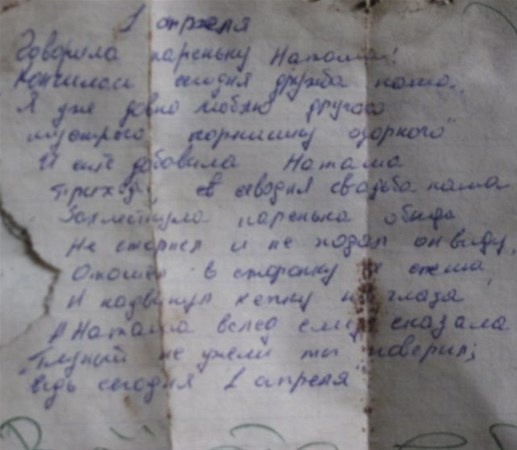 1 апреля
Говорила пареньку Наташа!
Кончилась сегодня дружба наша.
Я уже давно люблю другого
шустрого парнишку озорного"
И ещё добавила Наташа
Приходи, сегодня свадьба наша
Захлестнула паренька обида
Не стерпел и не подал он виду,
Отошёл в сторонку не спеша
И надвинул кепку на глаза
А Наташа вслед ему сказала
"Глупый не ужели ты поверил;
ведь сегодня 1 апреля